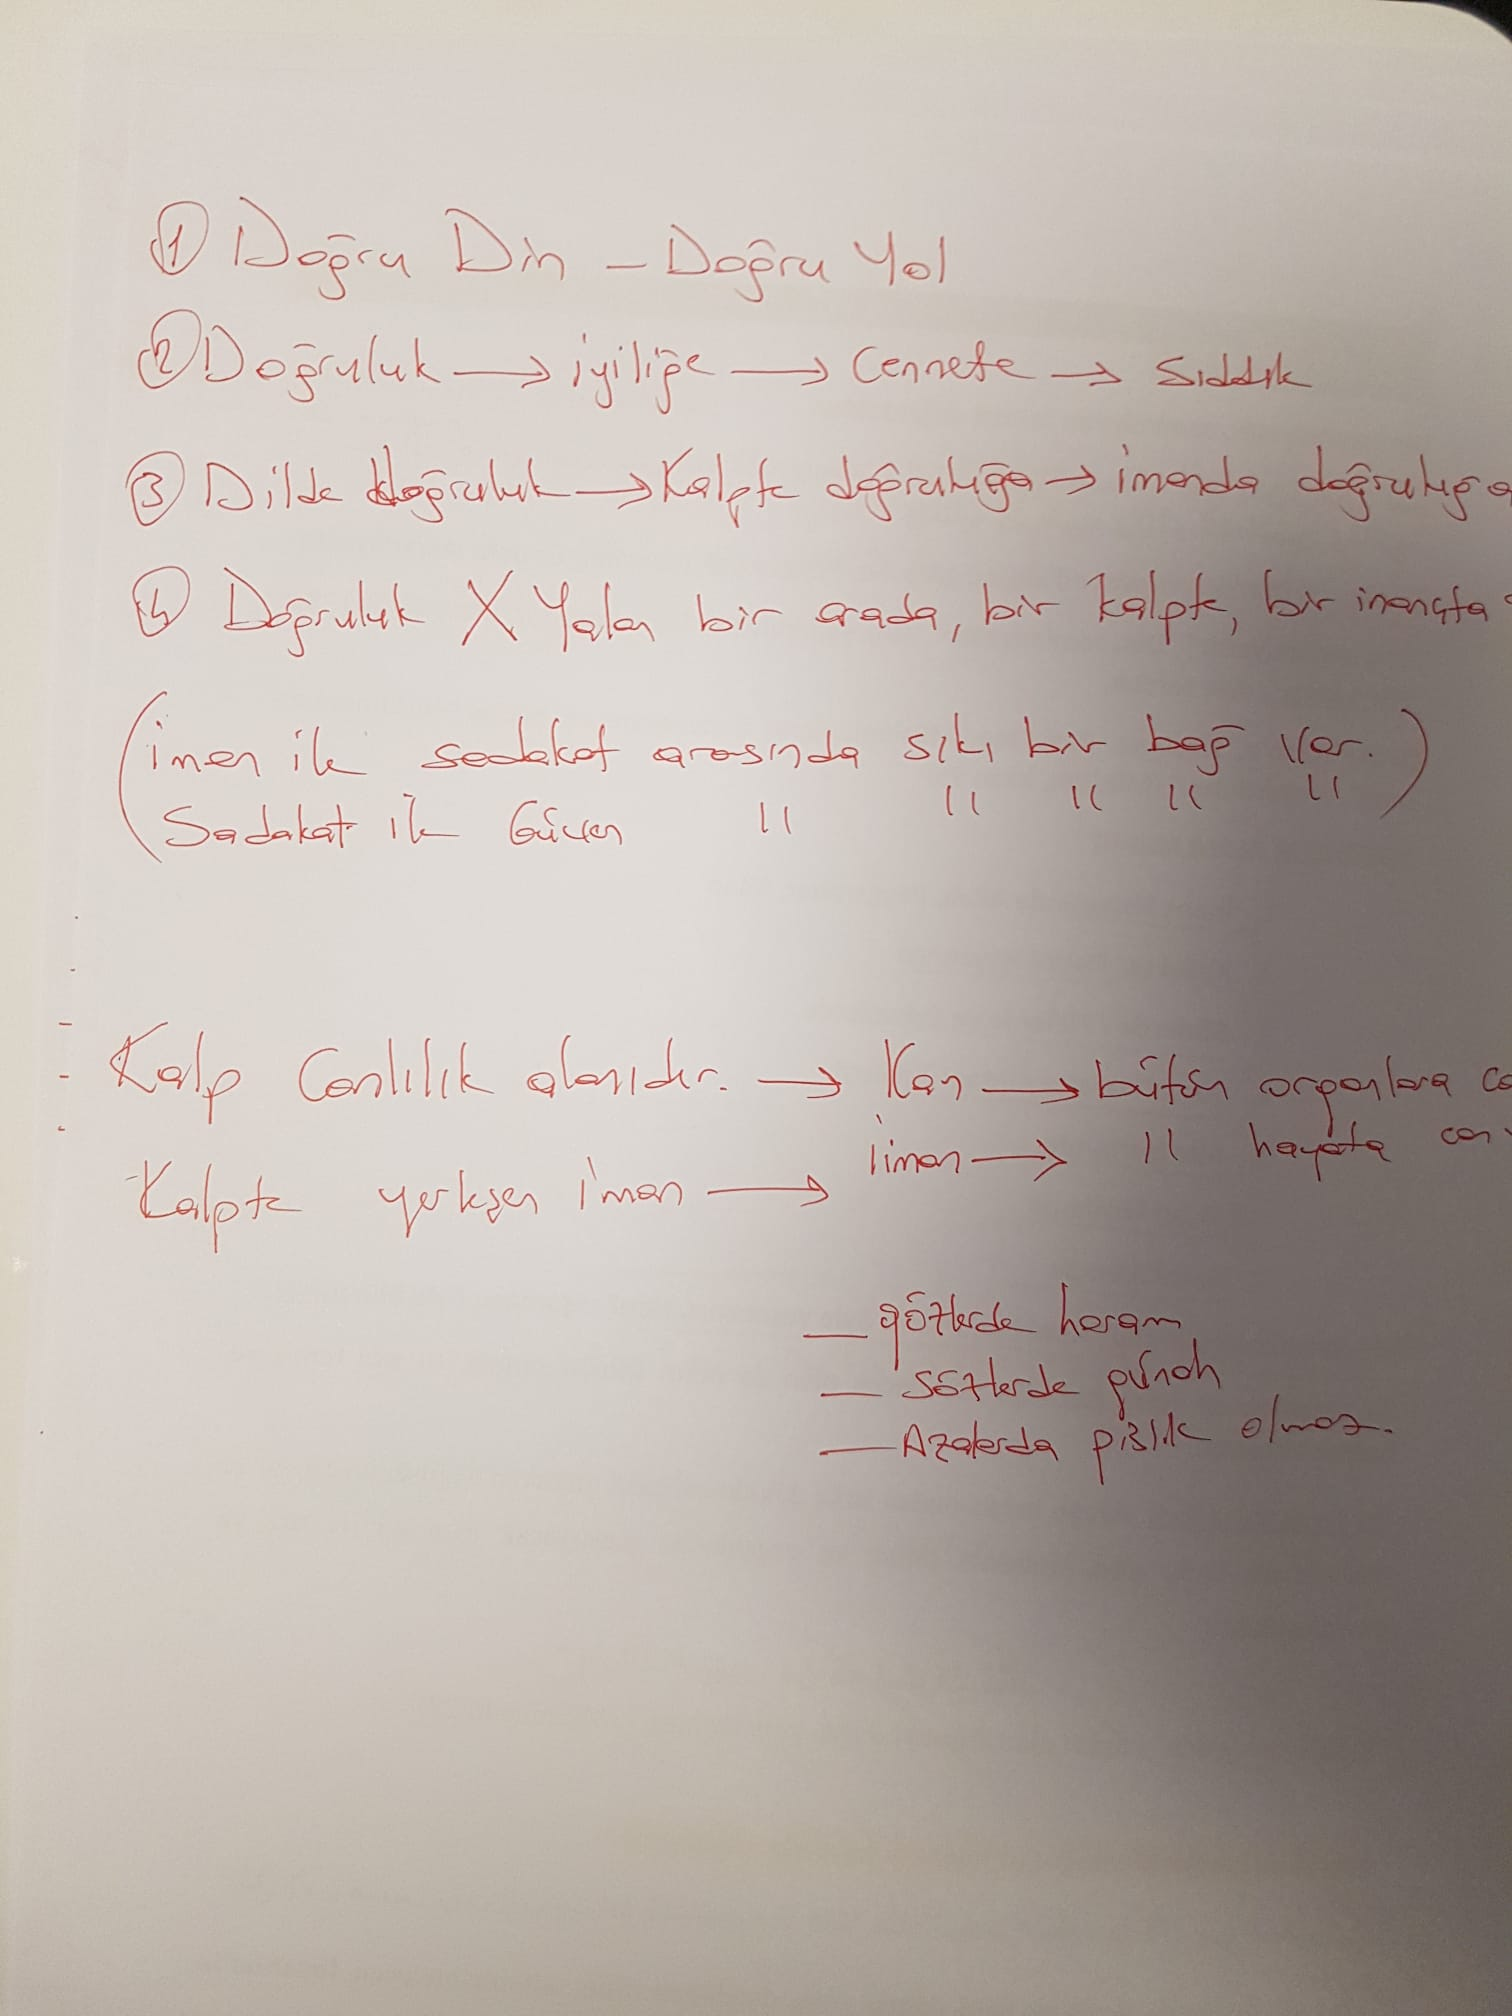 ① Doğru Din – Doğru Yol
② Doğruluk → iyiliğe → Cennete → Sıddık
③ Dilde doğruluk → Kalpte doğruluğa → imanda doğruluğa
④ Doğruluk X Yalan bir arada, bir kalpte, bir inançta
(iman ile sadakat arasında sıkı bir bağ var.)
Sadakat ile Güven " " " " "
Kalp Canlılık alanıdır. → Kan → bütün organlara ca
iman → " hayata can
Kalpte yerleşen iman →
— gözlerde haram
— sözlerde günah
— Azalarda pislik olmaz.